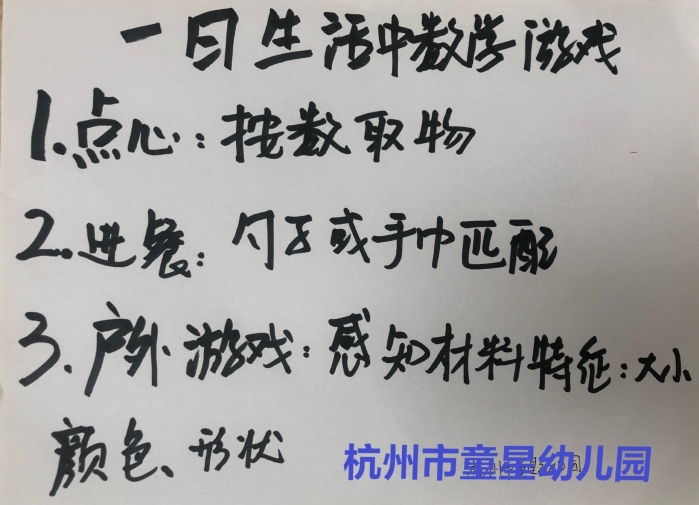 一日生活中数学游戏
1.点心：按数取物
2.进餐：勺子或手巾匹配
3.户外游戏：感知材料特征：大小
颜色、形状
杭州市童星幼儿园